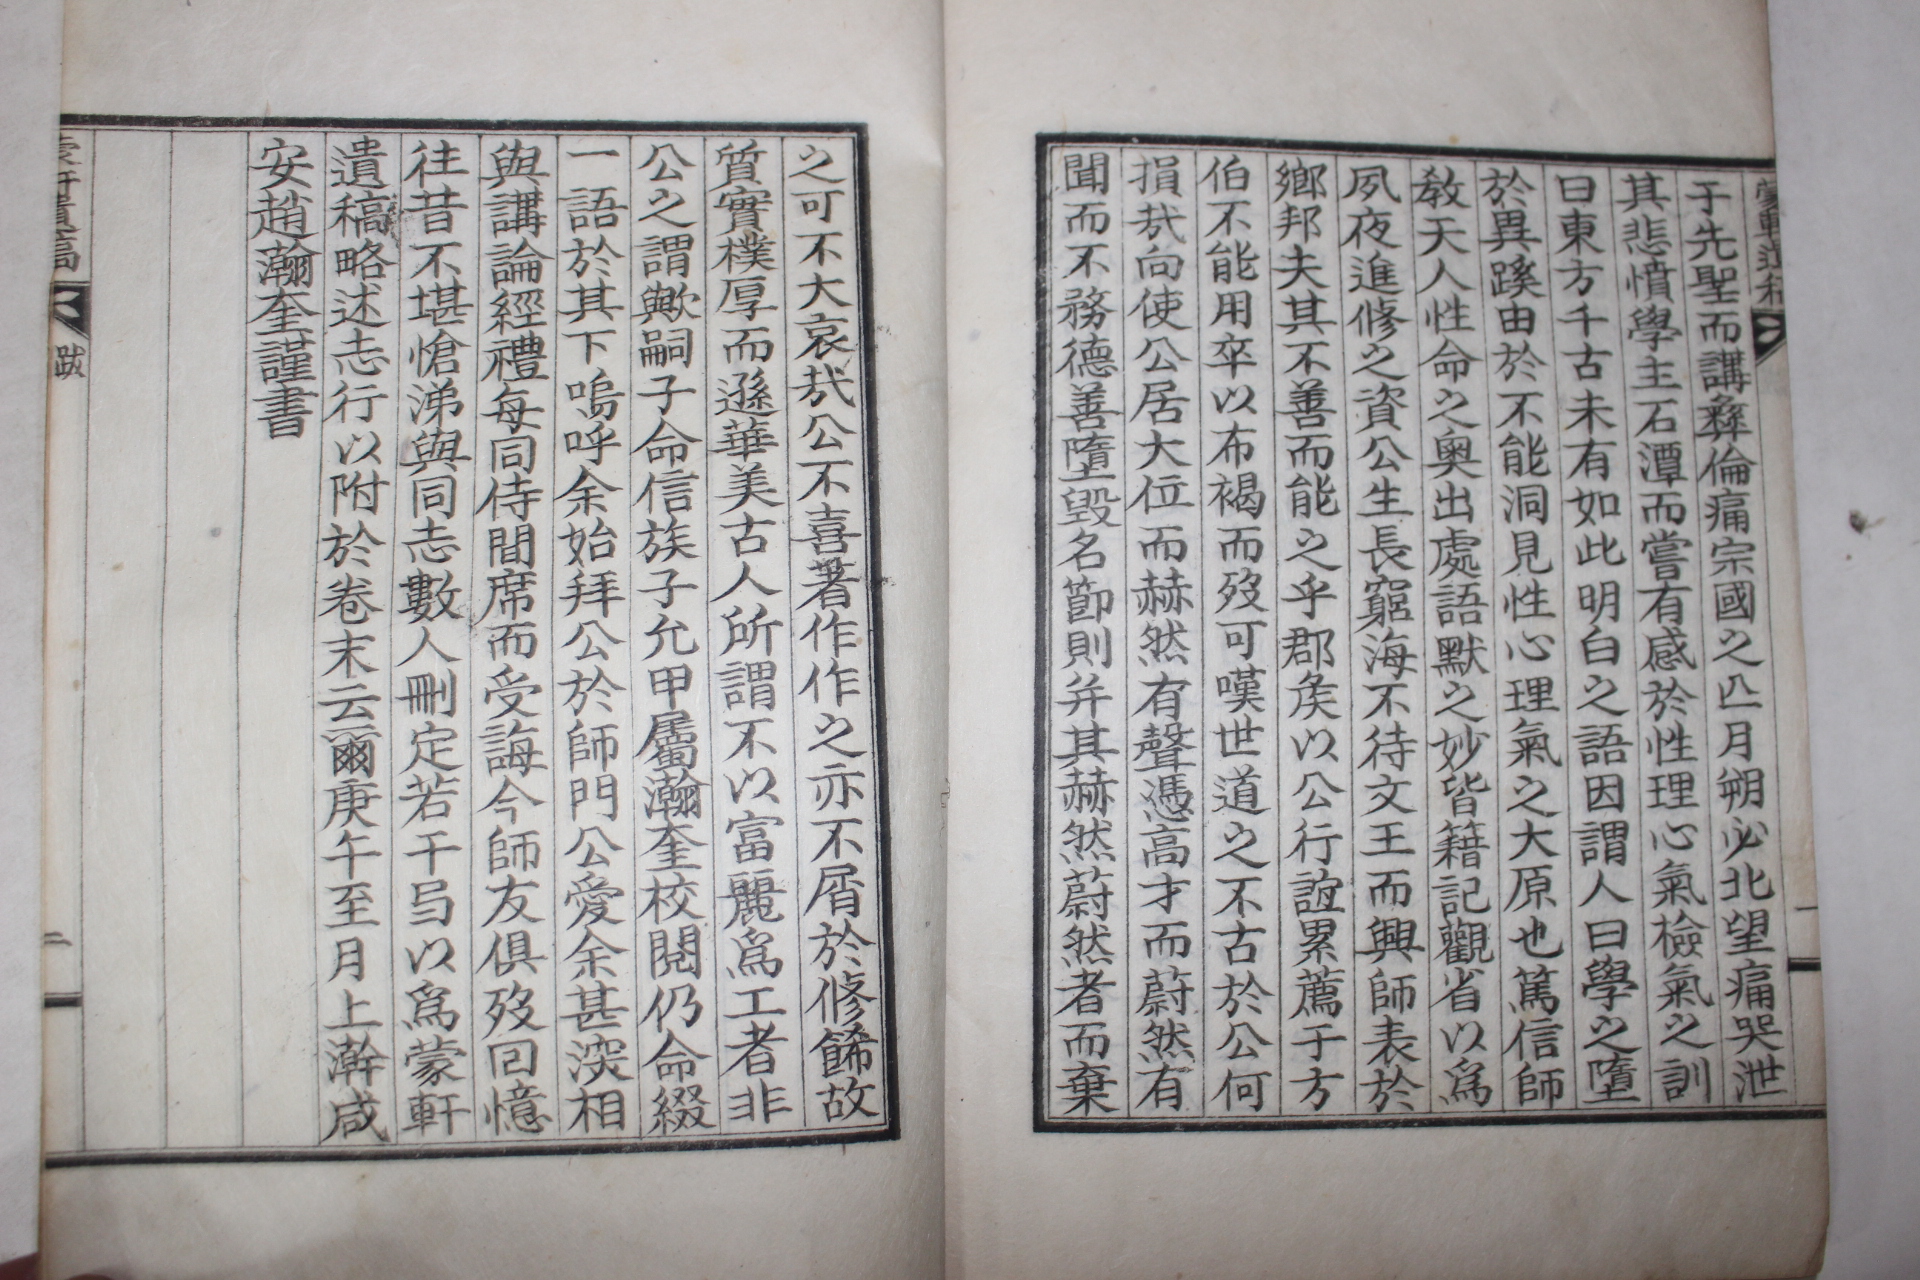 蒙軒遺稿
一
于先聖而講彜倫痛宗國之亾月朔必北望痛哭泄
其悲憤學主石潭而嘗有感於性理心氣檢氣之訓
曰東方千古未有如此明白之語因謂人曰學之墮
於異蹊由於不能洞見性心理氣之大原也篤信師
敎天人性命之奧出處語默之妙皆籍記觀省以爲
夙夜進修之資公生長窮海不待文王而興師表於
鄕邦夫其不善而能之乎郡矦以公行誼累薦于方
伯不能用卒以布褐而歿可嘆世道之不古於公何
損㢤向使公居大位而赫然有聲憑高才而蔚然有
聞而不務德善墮毀名節則幷其赫然蔚然者而棄
之可不大哀㢤公不喜著作作之亦不屑於修餙故
質實樸厚而遜華美古人所謂不以富麗爲工者非
公之謂歟嗣子命信族子允甲屬瀚奎校閱仍命綴
一語於其下嗚呼余始拜公於師門公愛余甚深相
與講論經禮每同侍間席而受誨今師友俱歿回憶
往昔不堪愴涕與同志數人刪定若干㢧以爲蒙軒
遺稿略述志行以附於卷末云爾庚午至月上澣咸
安趙瀚奎謹書
蒙軒遺稿
跋
二